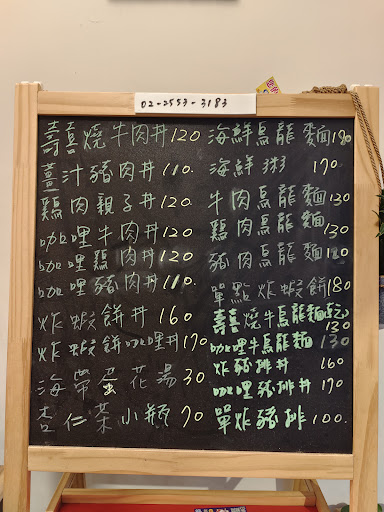 02-2553-3183
壽喜燒牛肉丼120
薑汁豬肉丼110
鷄肉親子丼120
咖哩牛肉丼120
咖哩鷄肉丼120
咖哩豬肉丼110
炸蝦餅丼160
炸蝦餅咖哩丼170
海帶蛋花湯30
杏仁茶小瓶70
海鮮烏龍麵190
海鮮粥170
牛肉烏龍麵130
鷄肉烏龍麵130
豬肉烏龍麵
單點炸蝦餅180
壽喜燒牛烏龍麵乾130
咖哩牛烏龍麵130
炸豬排丼160
咖哩豬排丼170
單炸豬排100